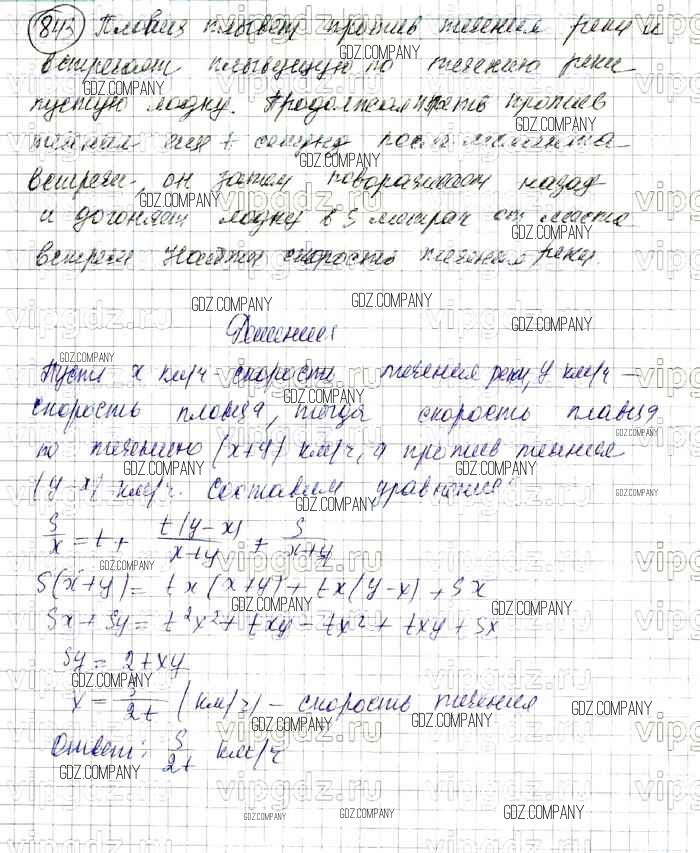 843 Пловец плывет против течения реки и
встречает плывущую по течению реки
пустую лодку. Продолжая плыть против
течения еще t секунд после момента
встречи, он затем поворачивает назад
и догоняет лодку в S метрах от места
встречи. Найти скорость течения реки.
Решения
Пусть x км/ч скорость течения реки, y км/ч –
скорость пловца, тогда скорость плавца
по течению (x+y) км/ч, а против течения
(y-x) км/ч. Составим уравнение
S/x = t + t(y-x)/x+y + S/x+y
S(x+y) = tx(x+y) + tx(y-x) + Sx
Sx + Sy = t²x² + txy - tx² + txy + Sx
Sy = 2txy
x = S/2t (км/ч) – скорость течения
Ответ: S/2t км/ч
GDZ.COMPANY
vipgdz.ru